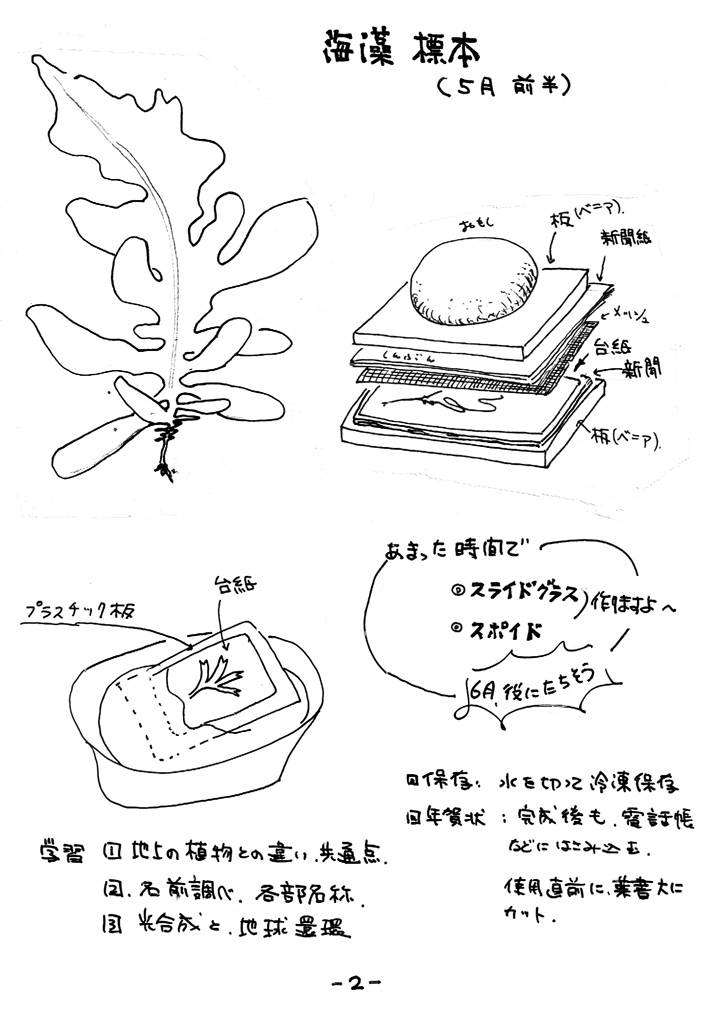 海藻 標本
(5月 前半)
おもし
板(ベニア).
新聞紙
メッシュ
しんぶん
台紙
新聞
板(ベニア).
台紙
プラスチック板
あまった時間で
◎スライドグラス
◎スポイド
作りますよ〜
6月、後にたちそう
回保存: 水を切って冷凍保存
回年賀状:完成後も、電話帳
などにはさみ込む.
使用直前に、葉書大に
カット.
学習 1 地上の植物との違い、共通点.
2. 名前調べ、各部名称.
3 光合成と、地球環境
-2-